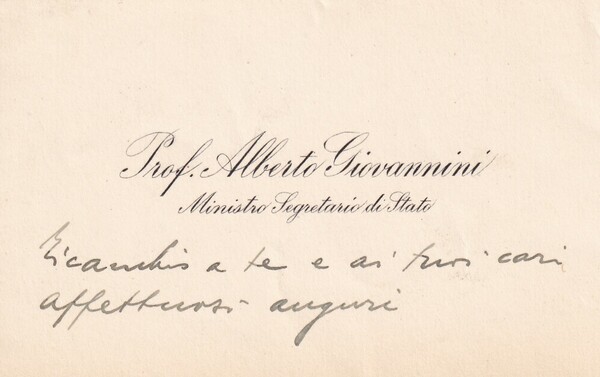 Prof. Alberto Giovannini
Ministro Segretario di Stato
Ricambio a te e ai tuoi cari
affettuosi auguri